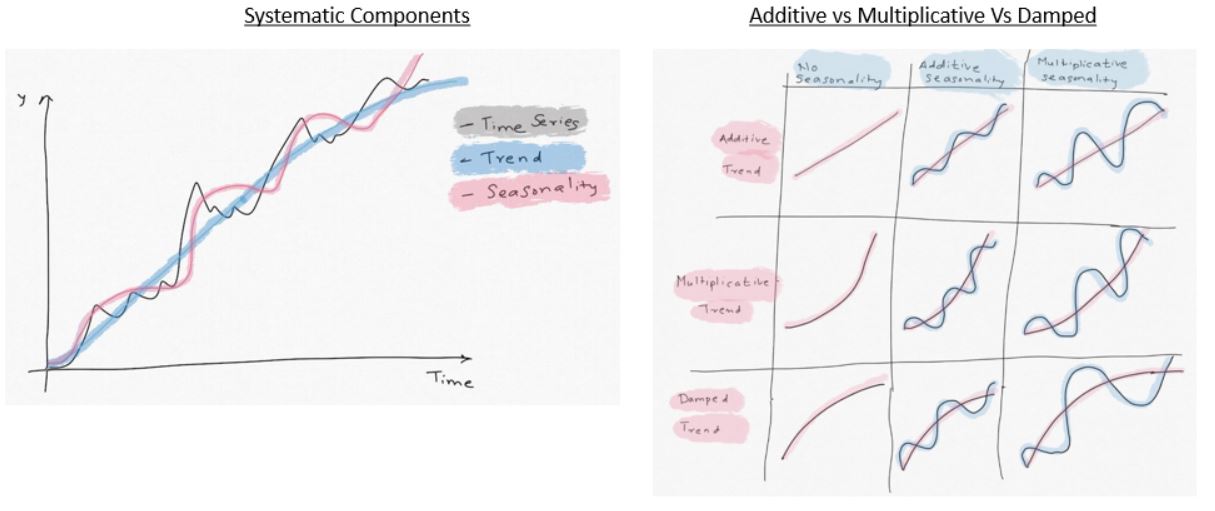 Systematic Components
y
– Time Series
– Trend
– Seasonality
Time
Additive vs Multiplicative Vs Damped
No
Seasonality
Additive
seasonality
Multiplicative
seasonality
Additive
Trend
Multiplicative
Trend
Damped
Trend